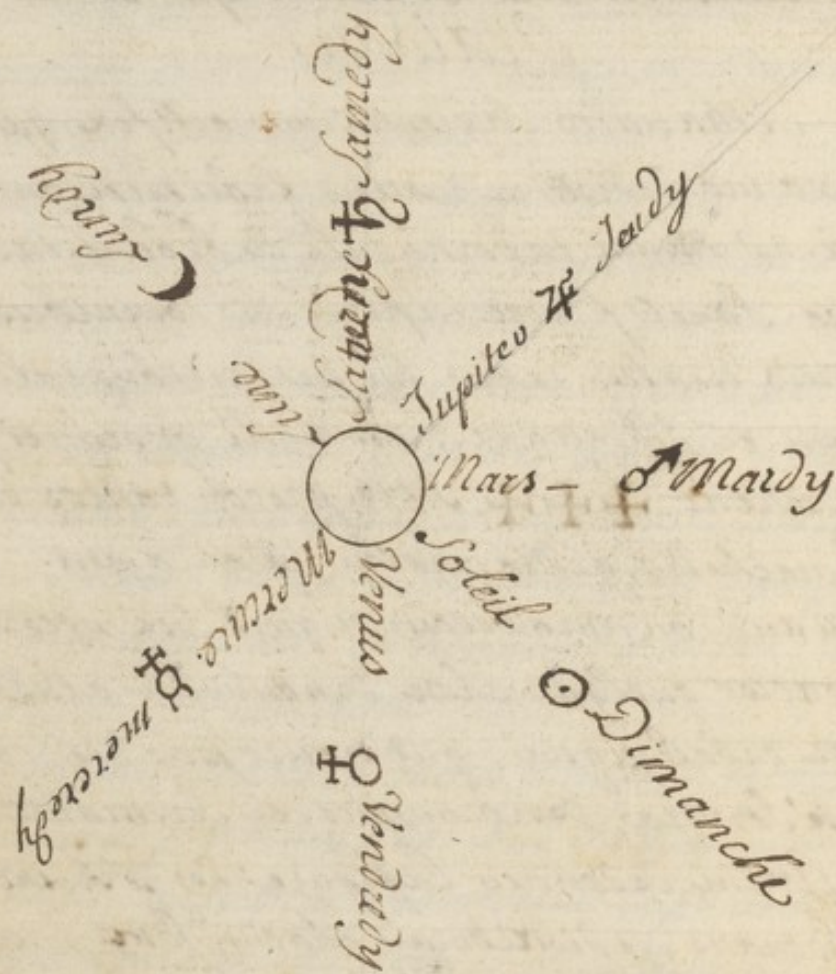 Saturne ♄ Samedy
Jupiter ♃ Jeudy
Mars - ♂ Mardy
Soleil ☉ Dimanche
Venus ♀ Vendredy
Mercure. ☿ mercredy
Lune ☾ Lundy